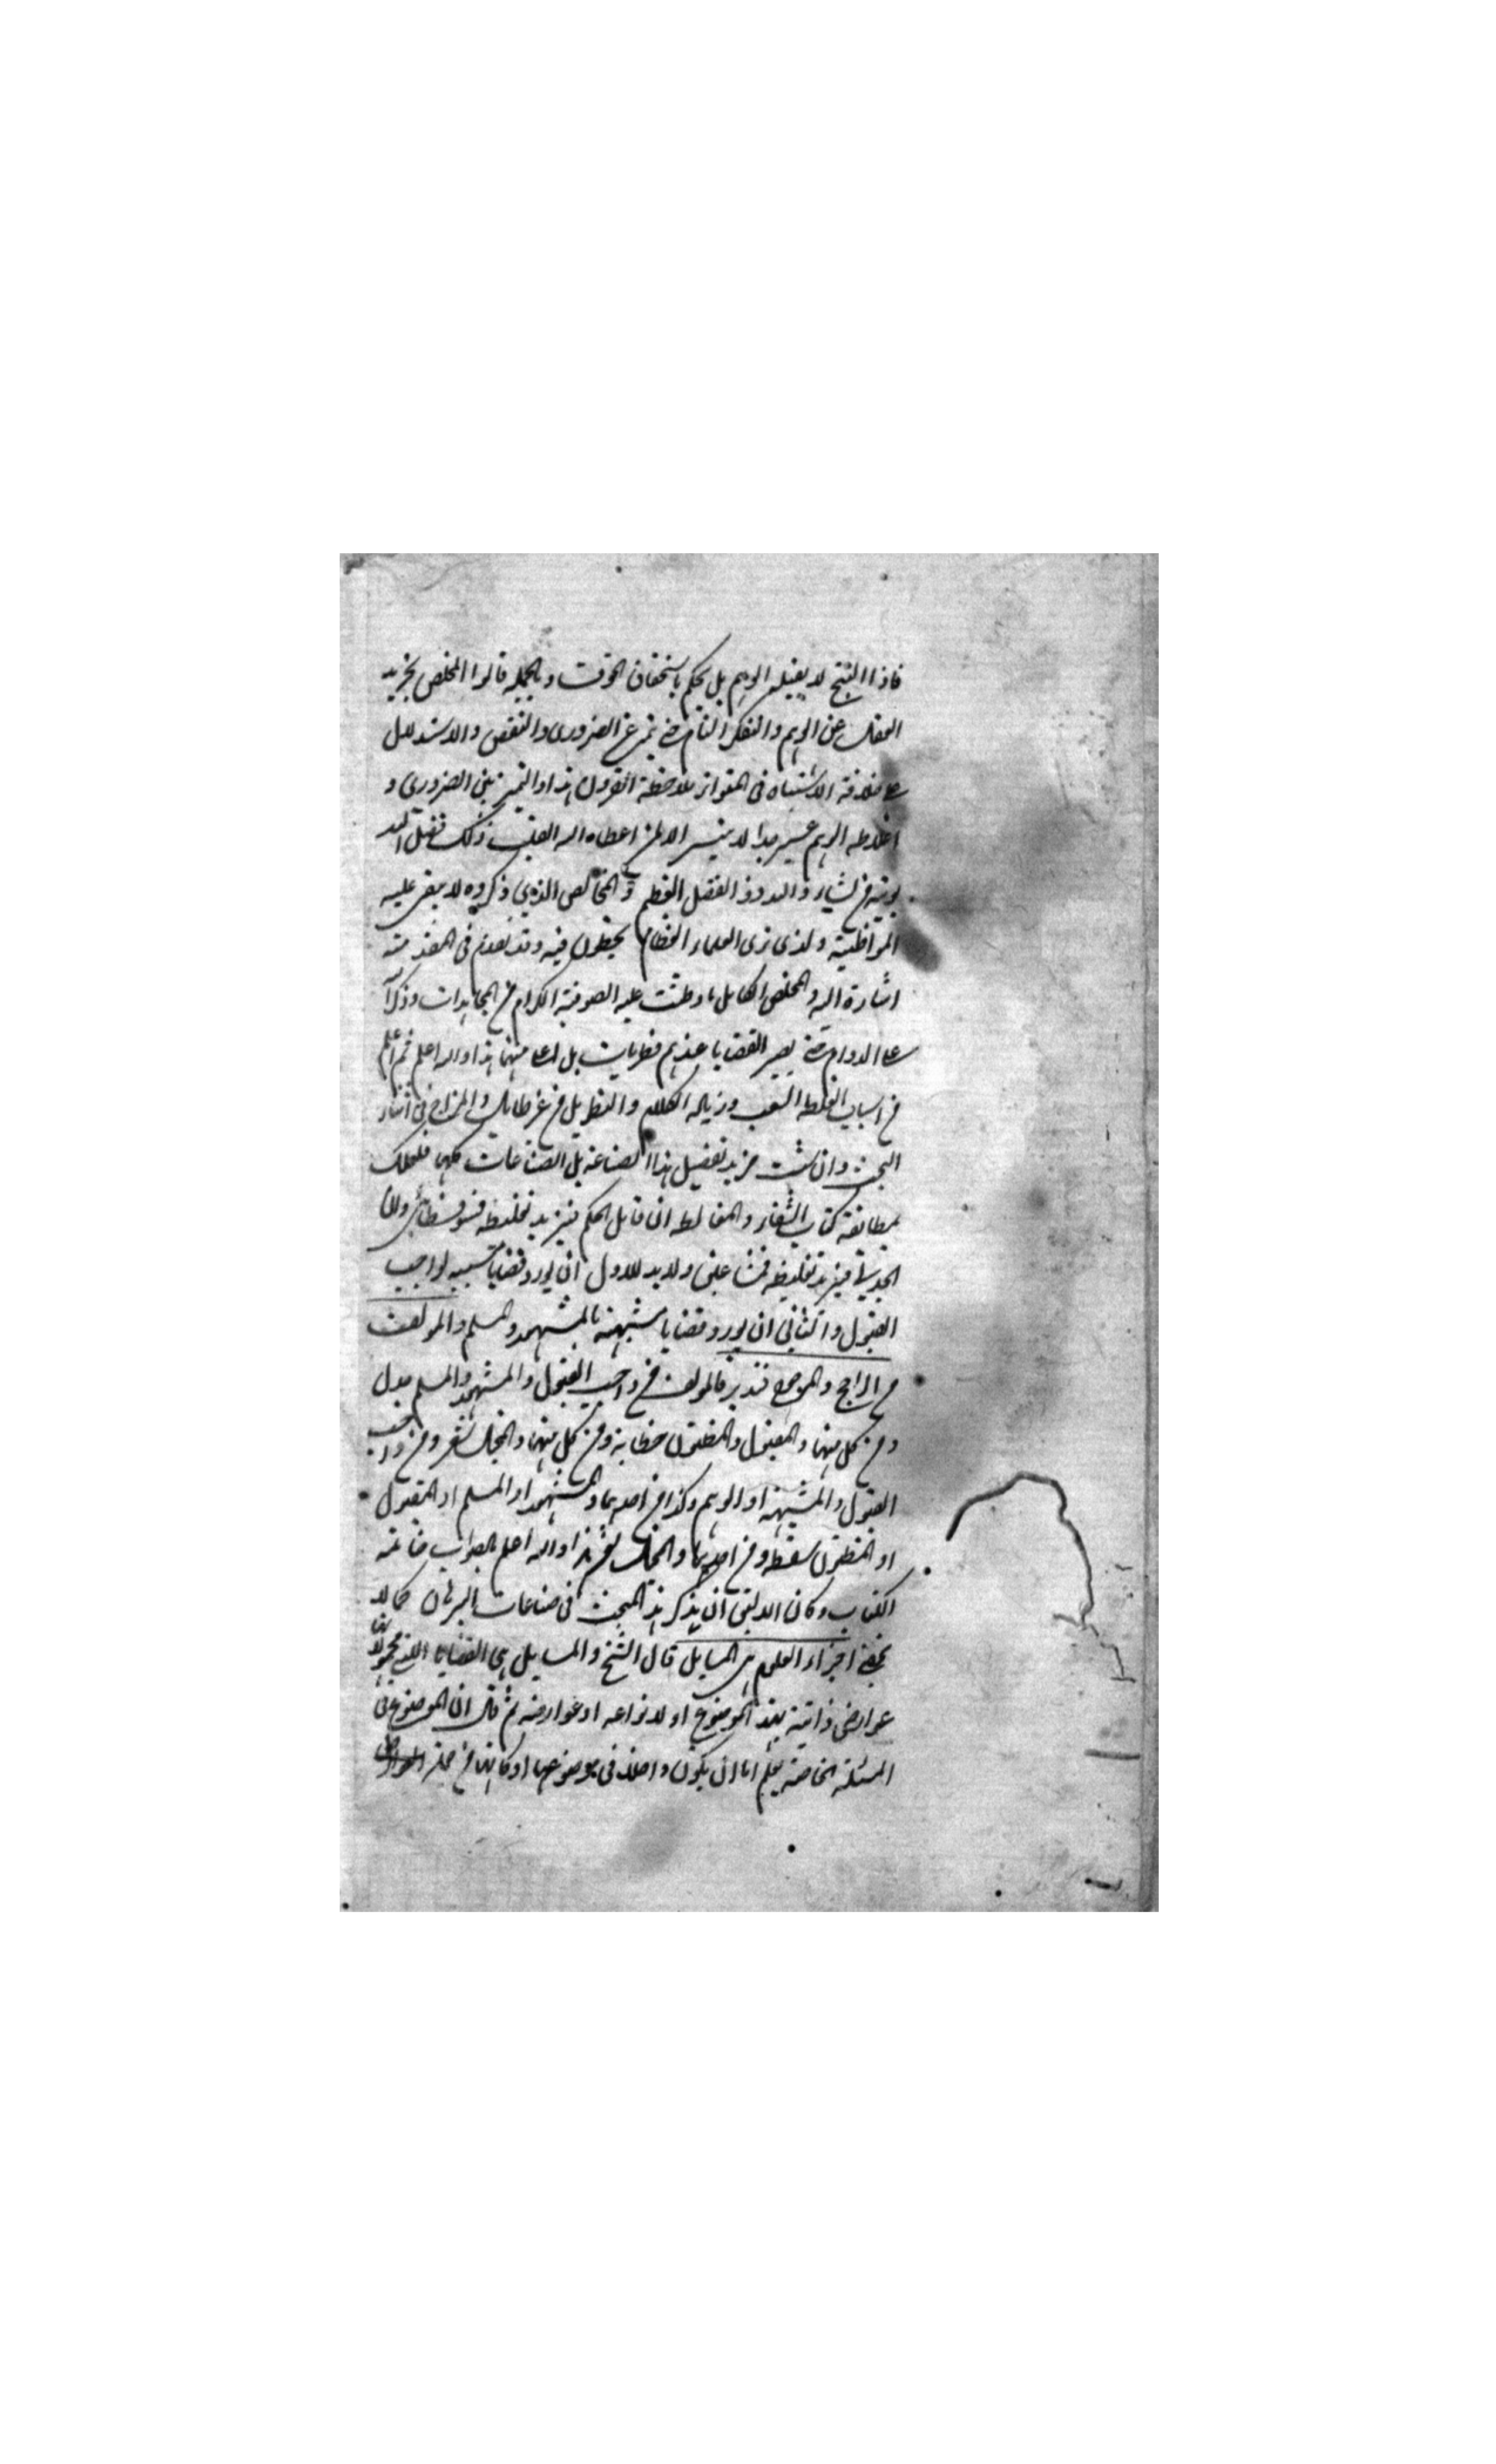 فاذا انتج لا يقبله الوهم بل يحكم باستحقاق الوقت وبالجملة قالوا المخلص تجريد
العقل عن الوهم والتفكر التام حتى يتميز عن الضروري والنقض والاستدلال
على خلافه الاشتباه في المتواتر ملاحظة القرون هذا والتميز بين الضروري و
اغلاطه الوهم عسير جدا لا يتيسر الا لمن اعطاه الله القلب ذلك فضل الله
يوتيه من يشاء والله ذو الفضل العظيم والمخالص الذي ذكروه لا يبقى عليه
المواظبة ولذي نرى العلماء العظام يخبطون فيه وقد تقدم في المقدمة
اشارة اليه والمخلص الكامل ما وظبت عليه الصوفية الكرام من المجاهدات وذكر الله
على الدوام حتى يصير القضايا عندهم فطريات بل اعلى منها هذا والله اعلم ثم اعلم
من اسباب الغلط الشغب وزيادة الكلام والتطويل من غير طائل والمزاح في اثناء
البحث وان شئت مزيد تفصيل هذا الصناعة بل الصناعات كلها فعليك
بمطالعة كتاب الشفاء والمغالط ان قابل الحكيم فيزيد تغليطه فسوفسطائي وان
الجدلي فيزيد تغليطه فمشاغبي ولا بد للاول ان يورد قضايا شبيهة لواجب
القبول والثاني ان يورد قضايا مشبهة بالمشهور والمسلم والمولف
من الراجح والمرجوح فتدبر فالمولف من واجب القبول والمشهور والمسلم جدل
ومن كل منها والمقبول والمظنون خطابة ومن كل منها والمخيل شعر ومن واجب
القبول والمشبهة او الوهم وكذا من احدهما والمشهور او المسلم او المقبول
او المظنون سفسطة ومن احدهما والمخيل شعر هذا والله اعلم بالصواب خاتمة
الكتاب وكان الاليق ان يذكر هذا المبحث في صناعات البرهان كما لا
يخفى اجزاء العلوم هي المسايل قال الشيخ والمسايل هي القضايا التي محمولاتها
عوارض ذاتية لهذا الموضوع او لانواعه او عوارضه ثم قال ان الموضوع في
المسئلة الخاصة بعلم اما ان يكون داخلا في موضوعها او كاينا من جملة العوارض